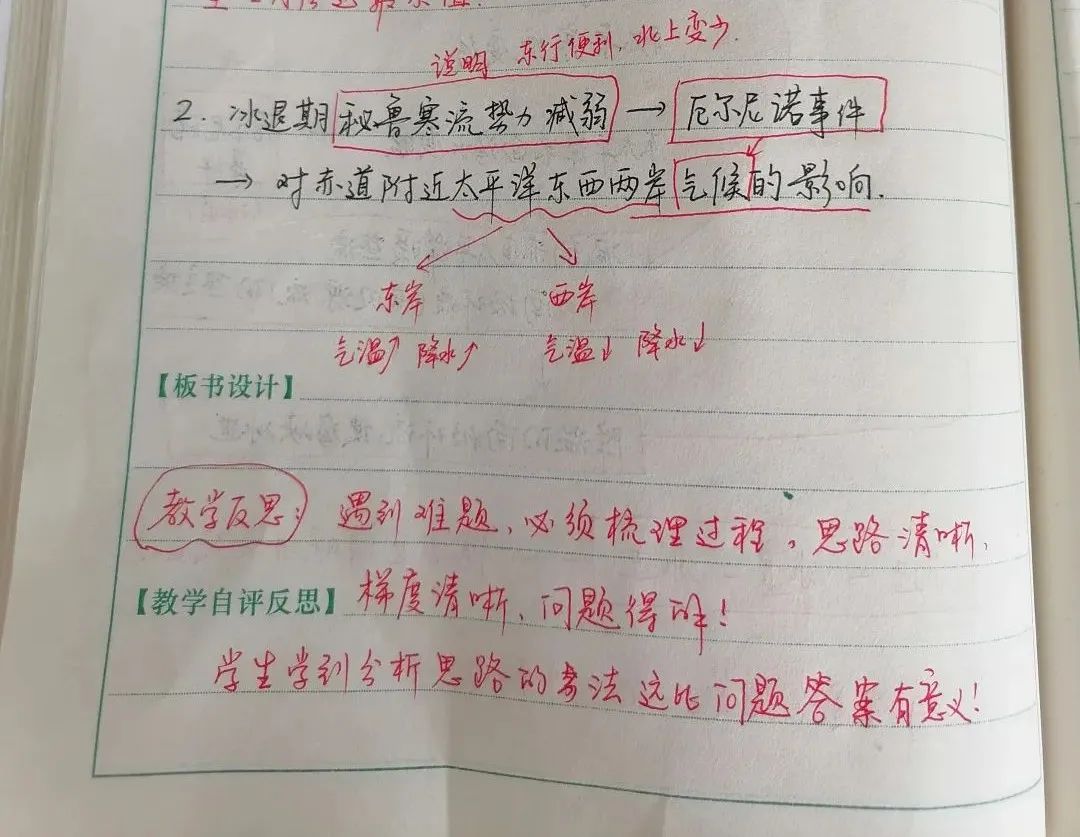 说明 东行便利，北上变少.
2. 冰退期秘鲁寒流势力减弱 → 厄尔尼诺事件
→ 对赤道附近太平洋东西两岸气候的影响.
东岸 西岸
气温↑ 降水↑ 气温↓ 降水↓
【板书设计】
教学反思： 遇到难题，必须梳理过程。思路清晰，
【教学自评反思】 梯度清晰，问题得解！
学生学到分析思路的方法远比问题答案有意义！